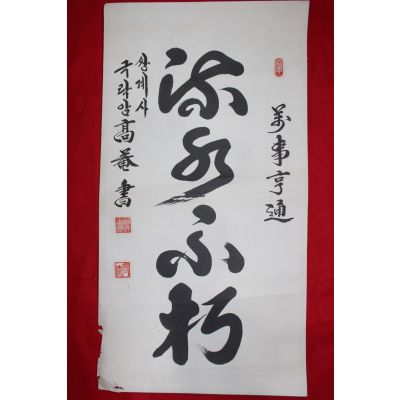 萬事亨通
流水不朽
쌍계사
국락암 高菴 書